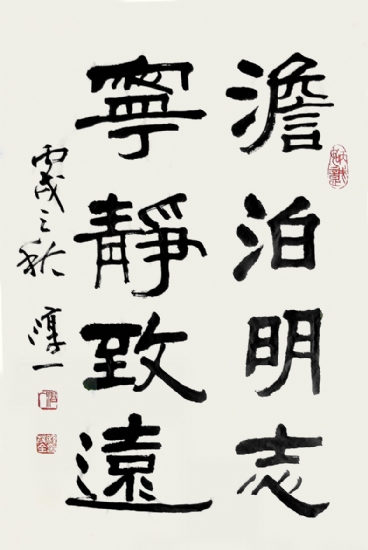 澹泊明志
寧靜致遠
丙戌之秋 淳一